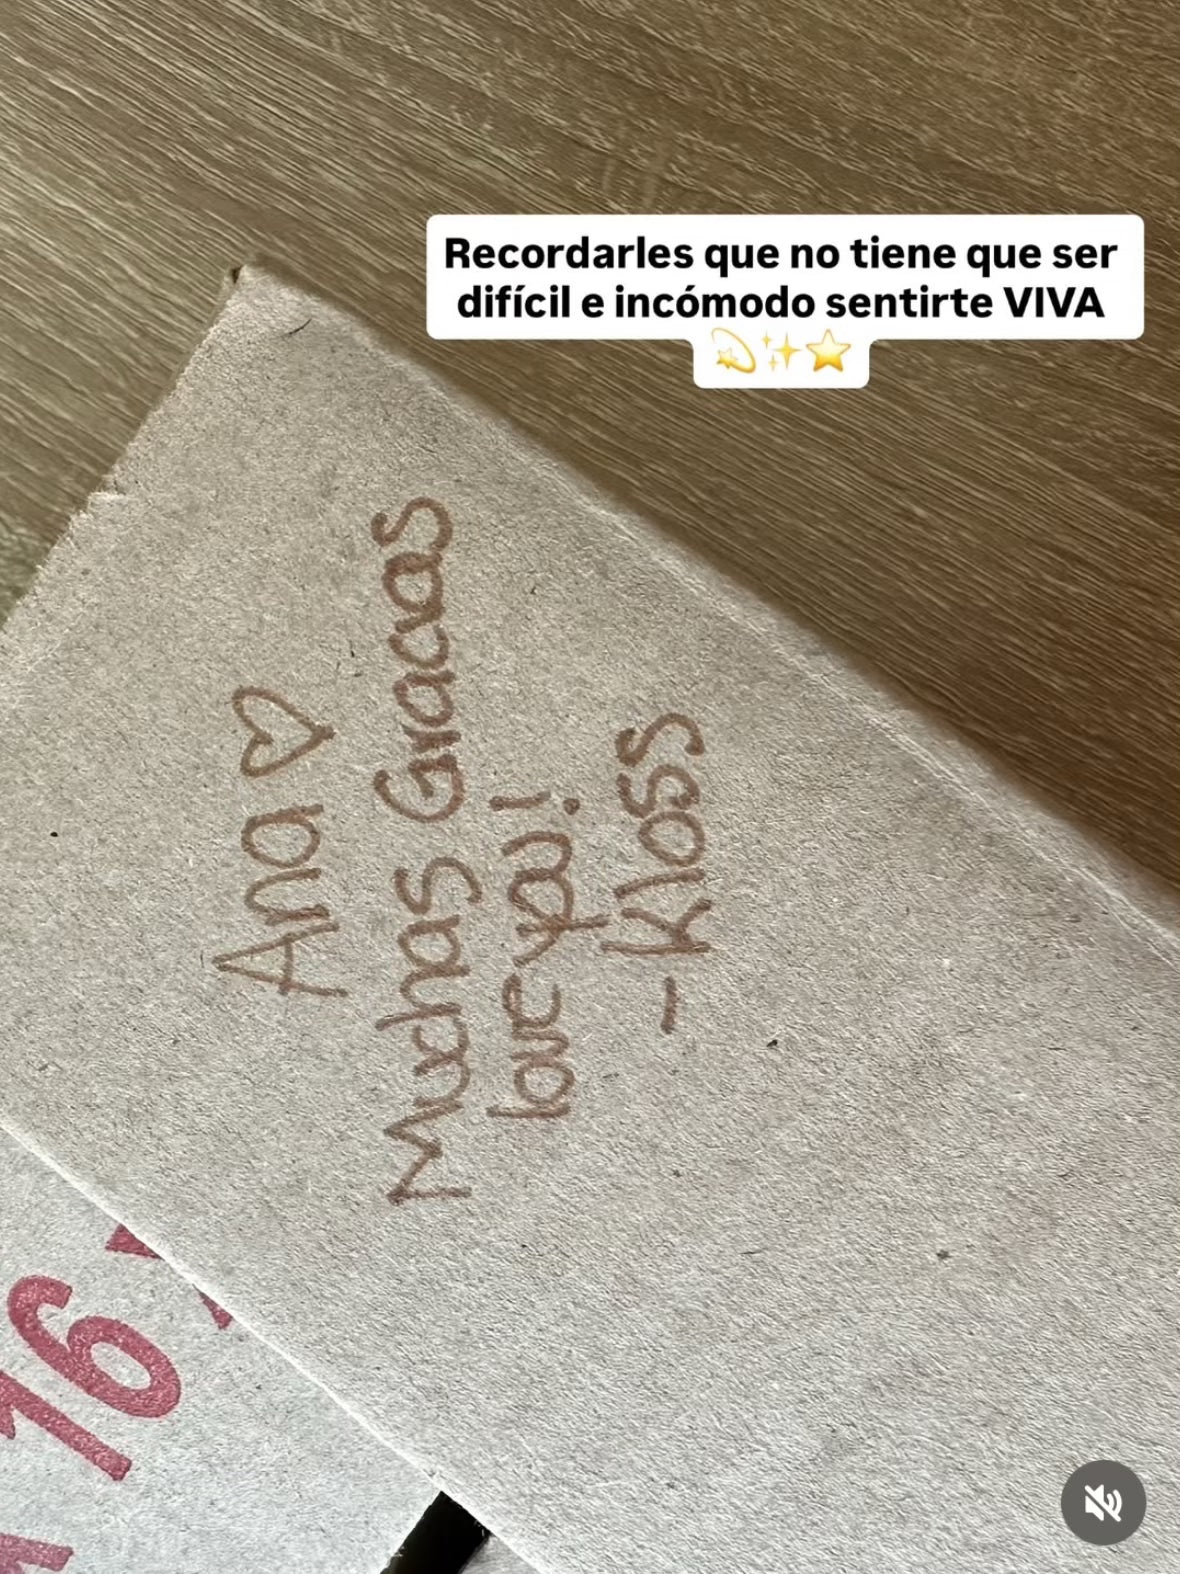 Recordarles que no tiene que ser
difícil e incómodo sentirte VIVA
💫✨⭐
Ana ♡
Muchas Gracias
love you!
- Kloss
16